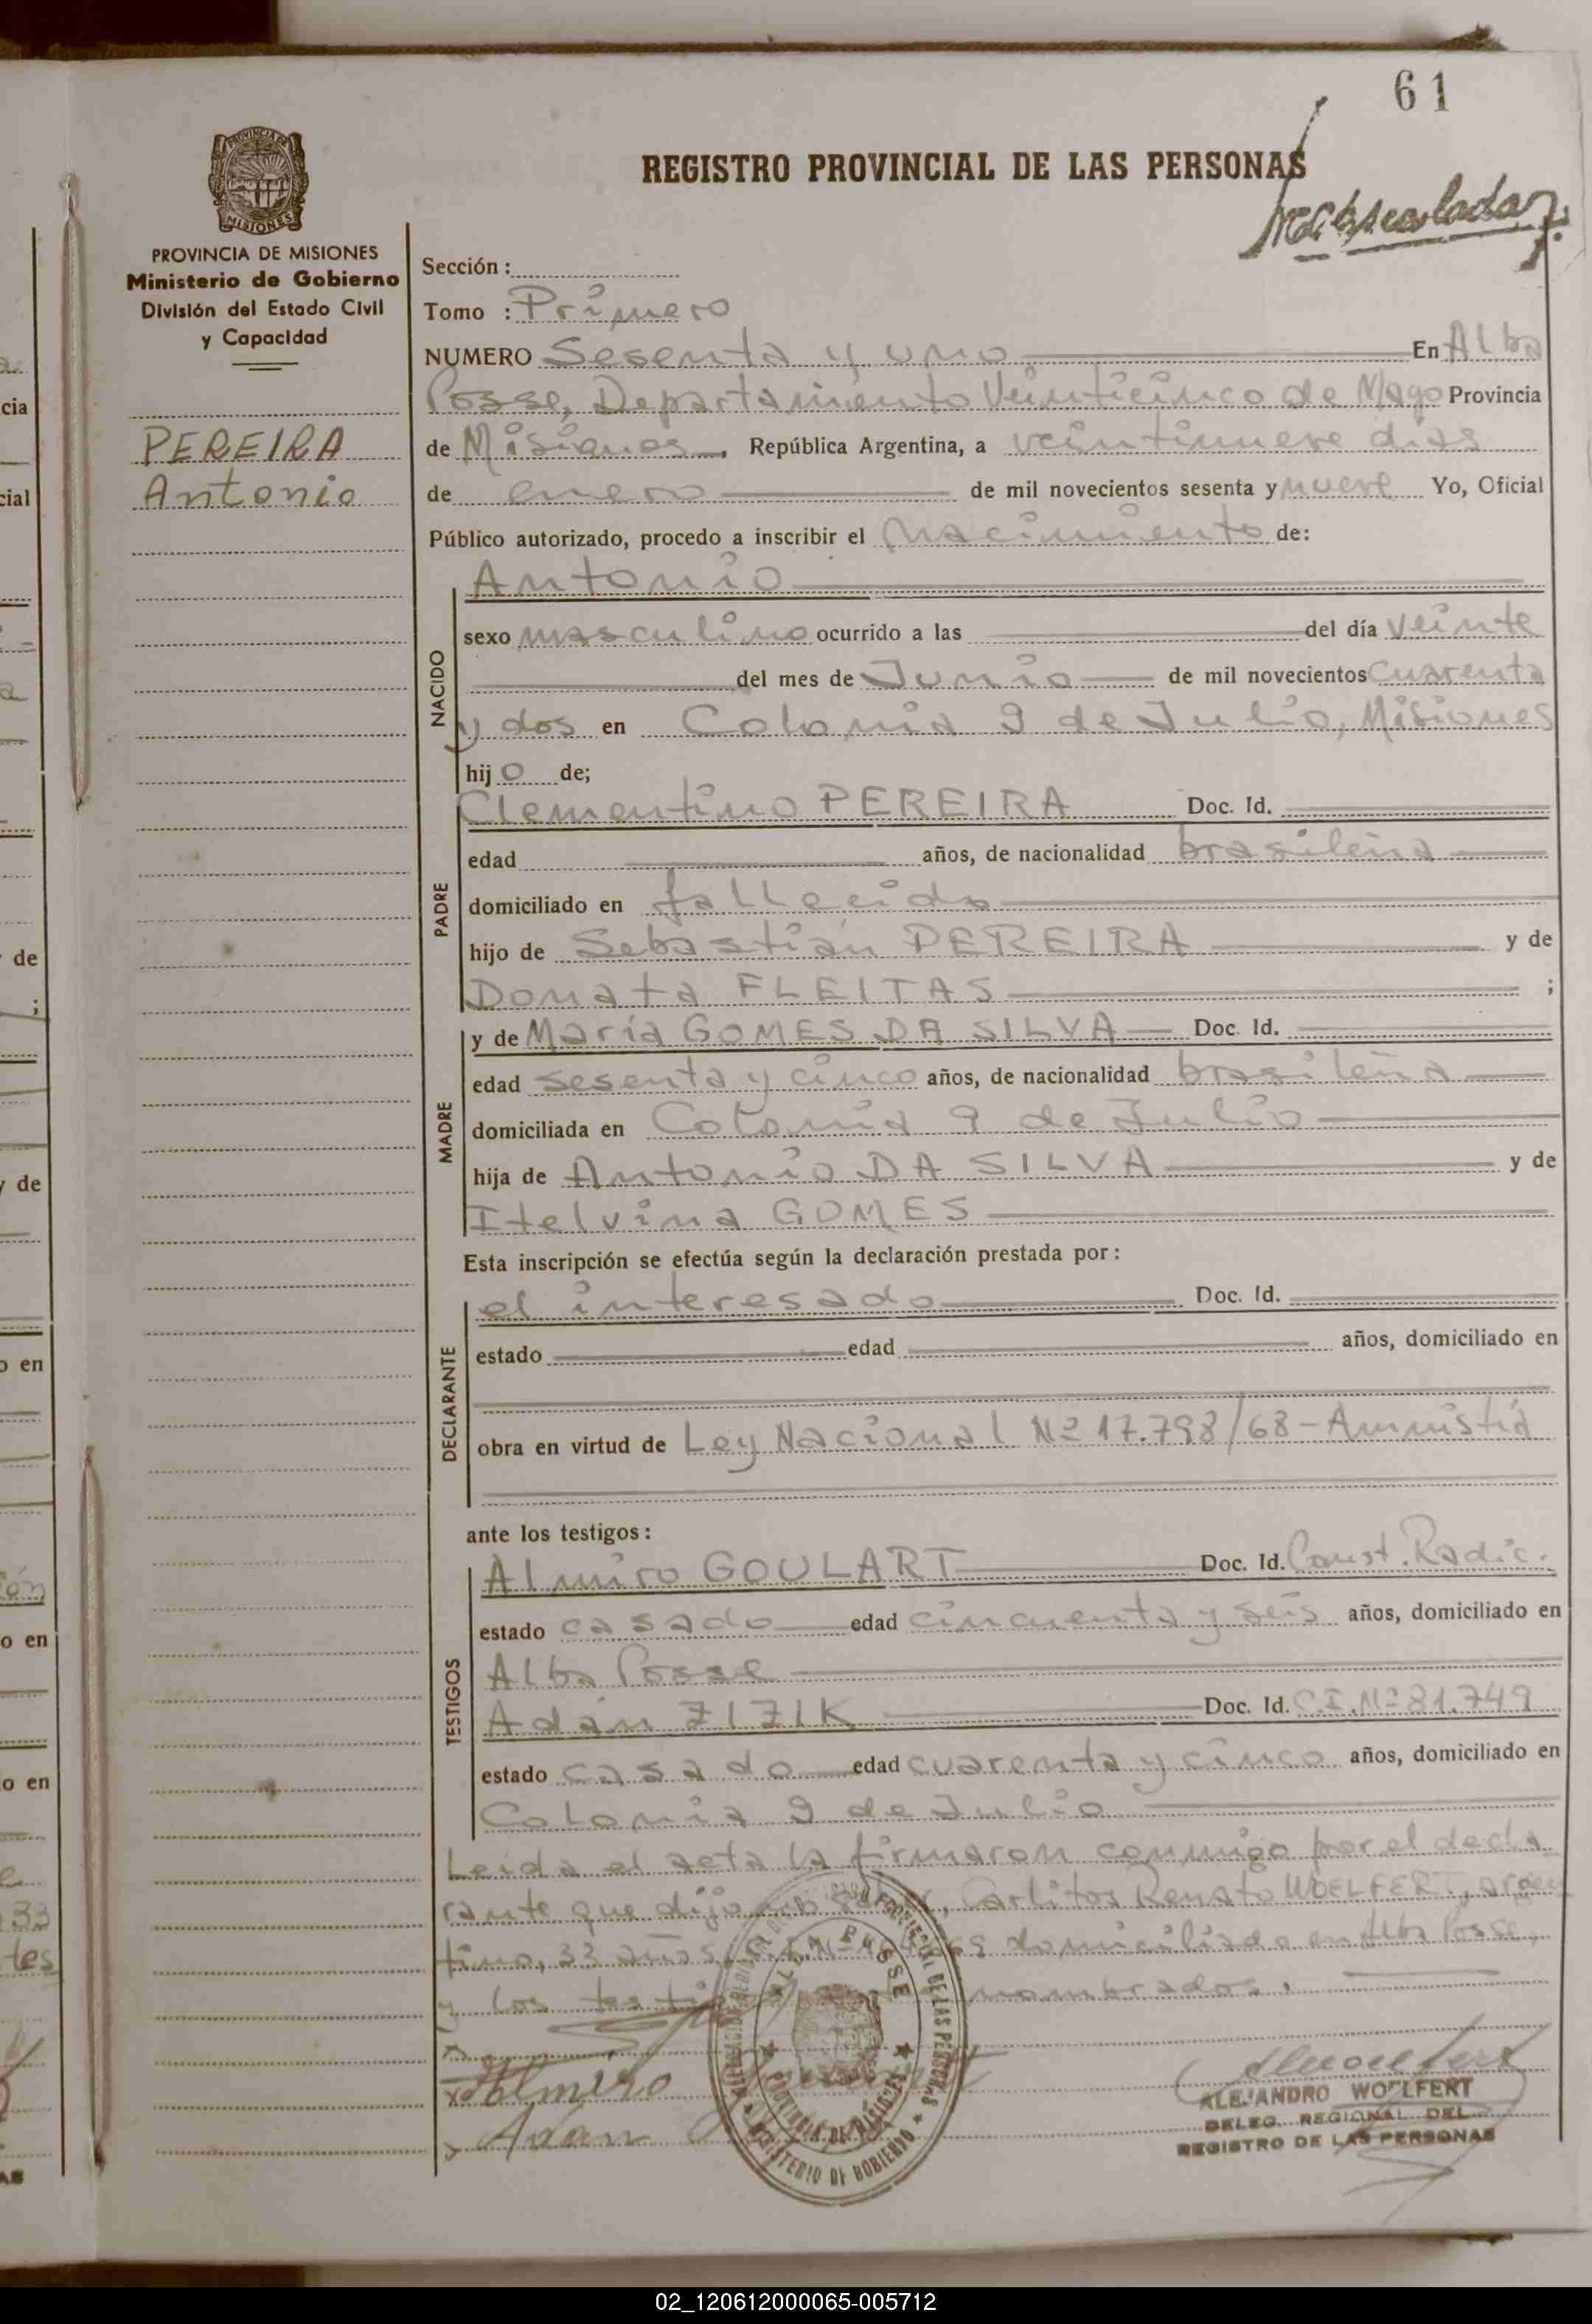 61
REGISTRO PROVINCIAL DE LAS PERSONAS
PROVINCIA DE MISIONES
Ministerio de Gobierno
División del Estado Civil
y Capacidad
PEREIRA
Antonio
Sección :
Tomo : Primero
NUMERO Sesenta y uno En Alba
Posse, Departamiento Veinticinco de Mayo Provincia
de Misiones, República Argentina, a veintinueve dias
de enero de mil novecientos sesenta y nueve Yo, Oficial
Público autorizado, procedo a inscribir el nacimiento de:
NACIDO
Antonio
sexo masculino ocurrido a las del día veinte
del mes de Junio de mil novecientos cuarenta
y dos en Colonia 9 de Julio, Misiones
hijo de;
PADRE
Clementino PEREIRA Doc. Id.
edad años, de nacionalidad brasileña
domiciliado en fallecido
hijo de Sebastián PEREIRA y de
Donata FLEITAS ;
MADRE
y de María GOMES DA SILVA Doc. Id.
edad sesenta y cinco años, de nacionalidad brasileña
domiciliada en Colonia 9 de Julio
hija de Antonio DA SILVA y de
Itelvina GOMES
Esta inscripción se efectúa según la declaración prestada por :
DECLARANTE
el interesado Doc. Id.
estado edad años, domiciliado en
obra en virtud de Ley Nacional Nº 17.798/68 - Amnistía
ante los testigos :
TESTIGOS
Almiro GOULART Doc. Id. Const. Radic.
estado casado edad cincuenta y seis años, domiciliado en
Alba Posse
Adán ZIZIK Doc. Id. C.I. Nº 81.749
estado casado edad cuarenta y cinco años, domiciliado en
Colonia 9 de Julio
Leída el acta la firmaron conmigo por el decla
rante que dijo no , Carlitos Renato WOELFERT, argen
tino, 33 años, domiciliado en Alba Posse,
y los nombrados.
Almiro
Adán
ALEJANDRO WOELFERT
DELEG. REGIONAL DEL
REGISTRO DE LAS PERSONAS
ALBA POSSE
PROVINCIA DE MISIONES
MINISTERIO DE GOBIERNO
02_120612000065-005712